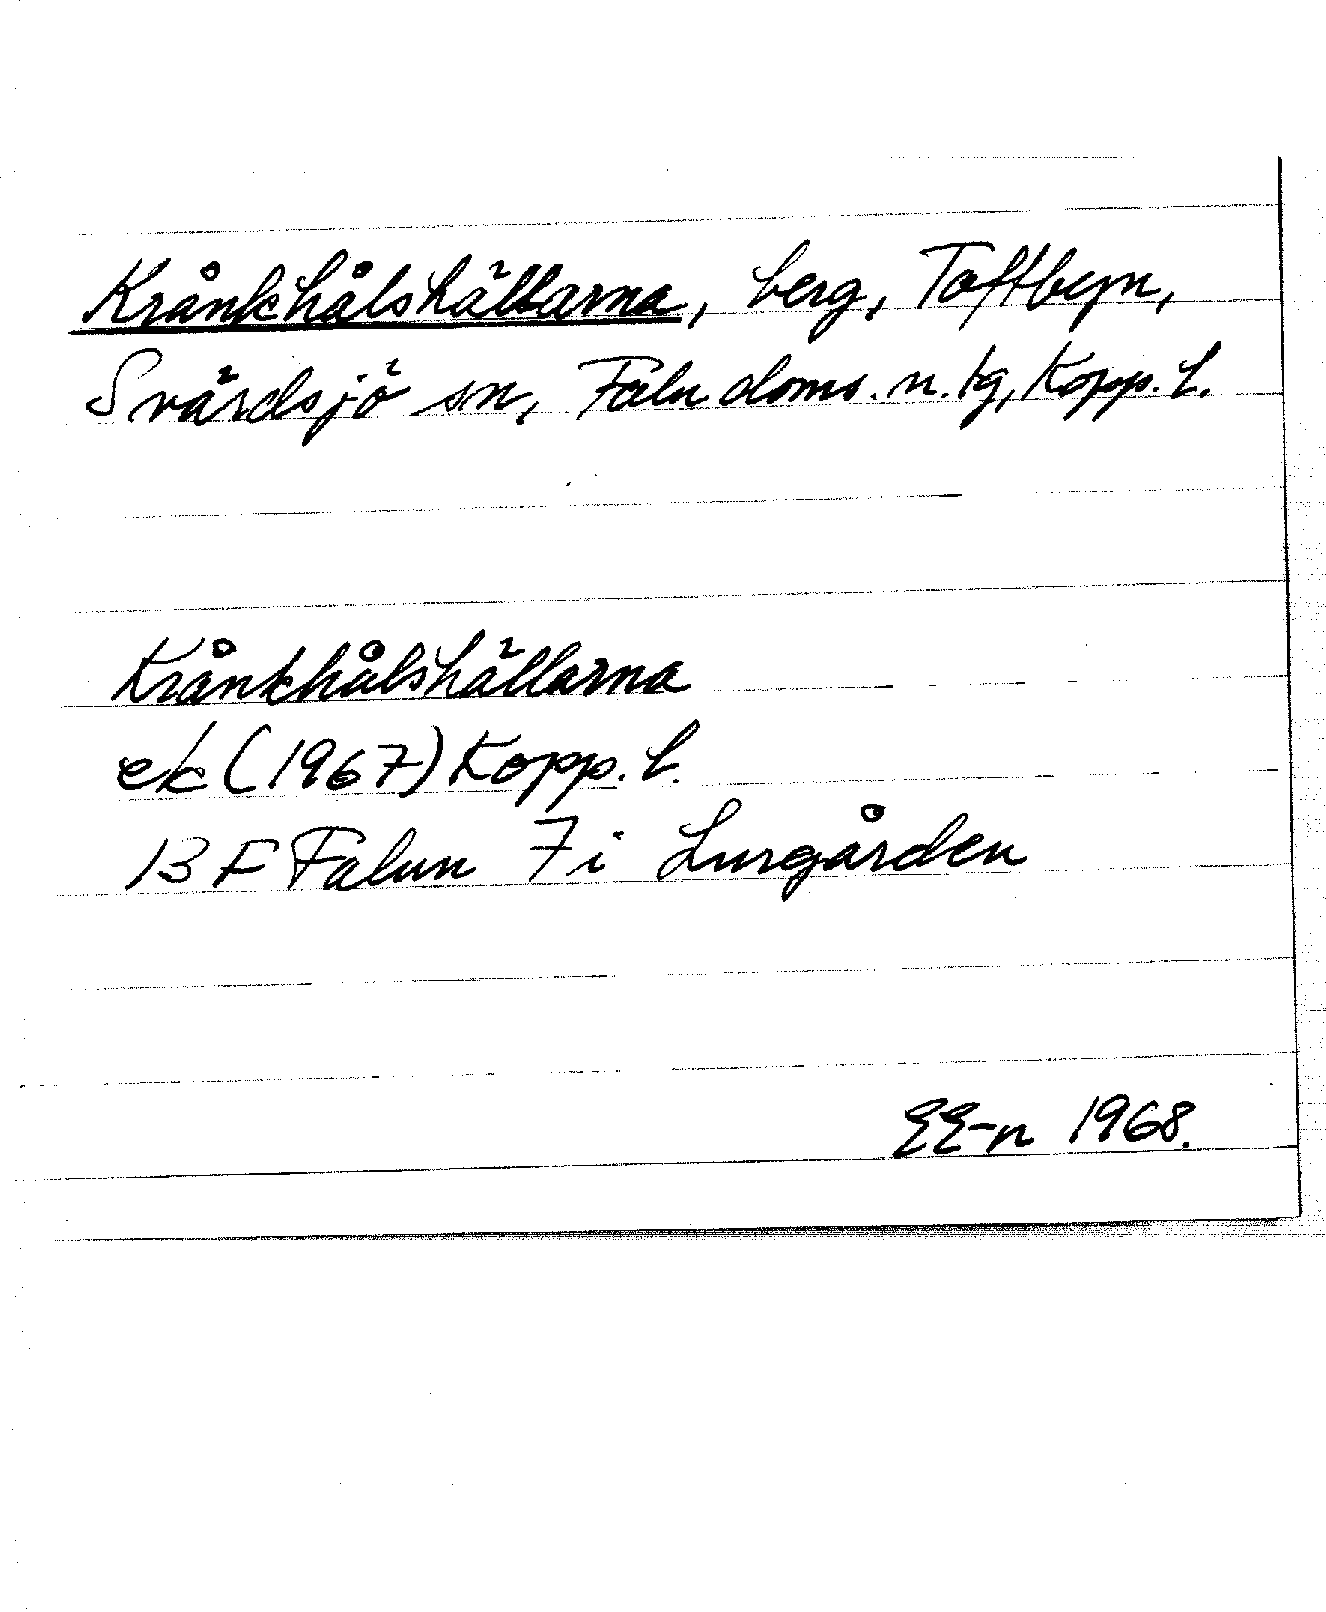 Krånkhålshällarna, berg, Toftbyn,
Svärdsjö sn, Falu doms. n. tg, Kopp. l.
Krånkhålshällarna
ek (1967) Kopp. l.
13 F Falun 7 i Lurgården
EE-n 1968.